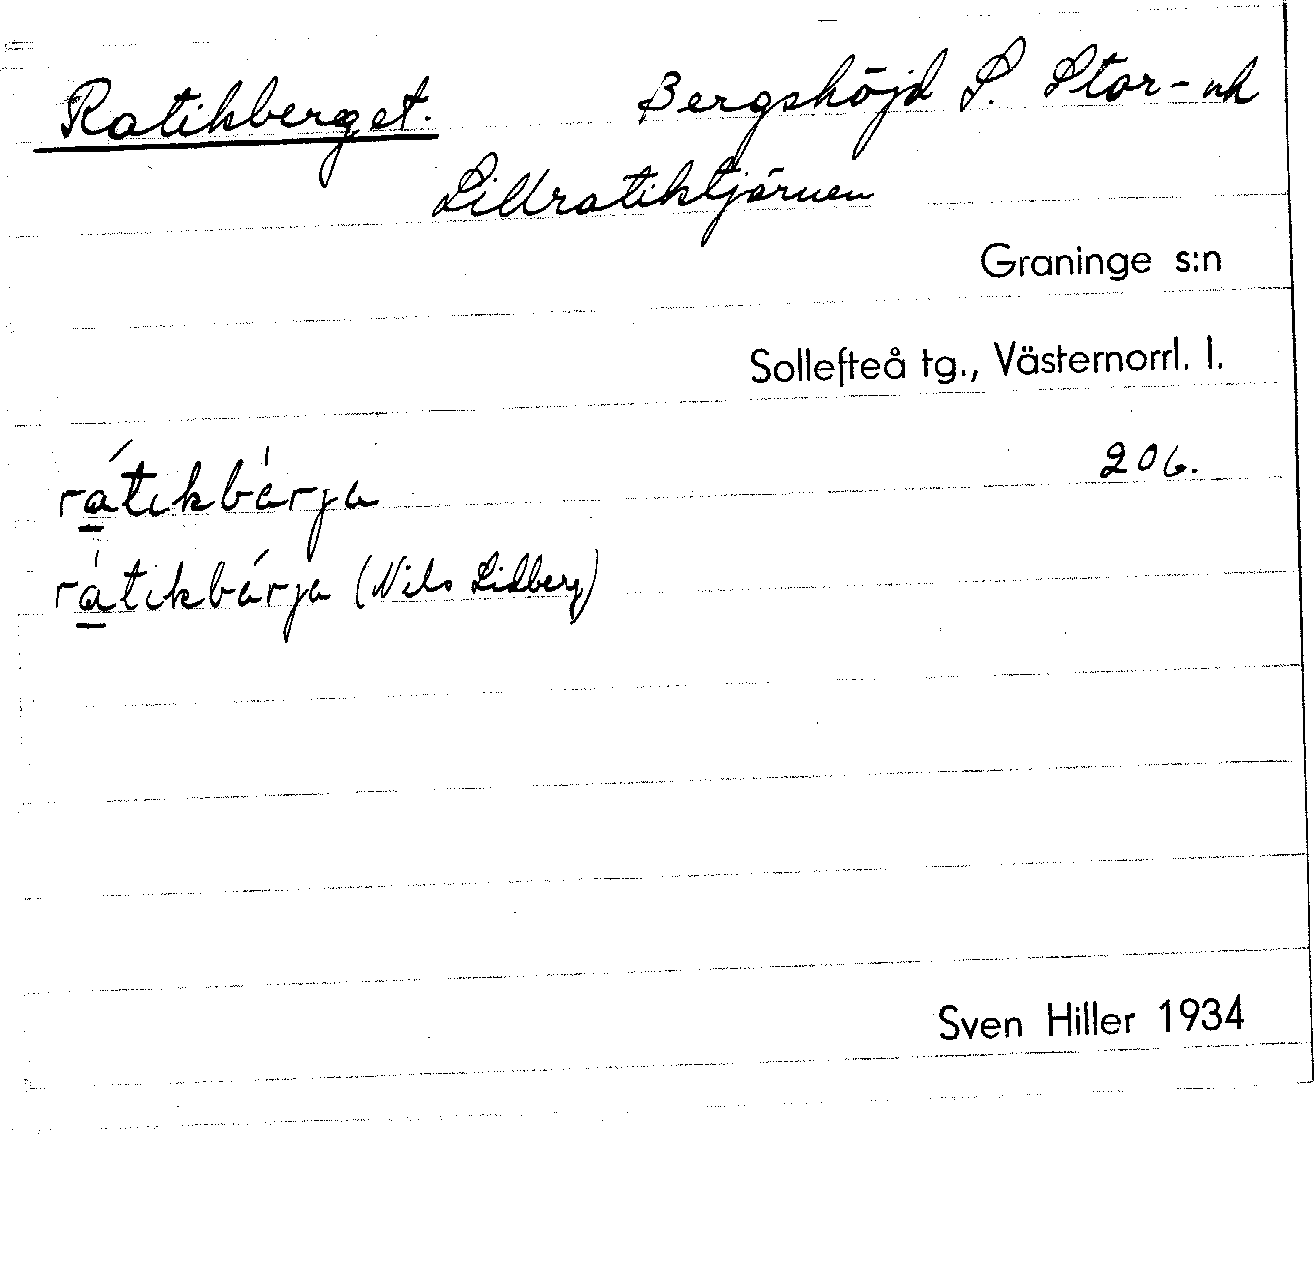 Ratikberget. Bergshöjd S. Stor- ok
Lillratiktjärnen
Graninge s:n
Sollefteå tg., Västernorrl. l.
206.
rátikbàrja
ràtikbárja (Nils Lidberg)
Sven Hiller 1934